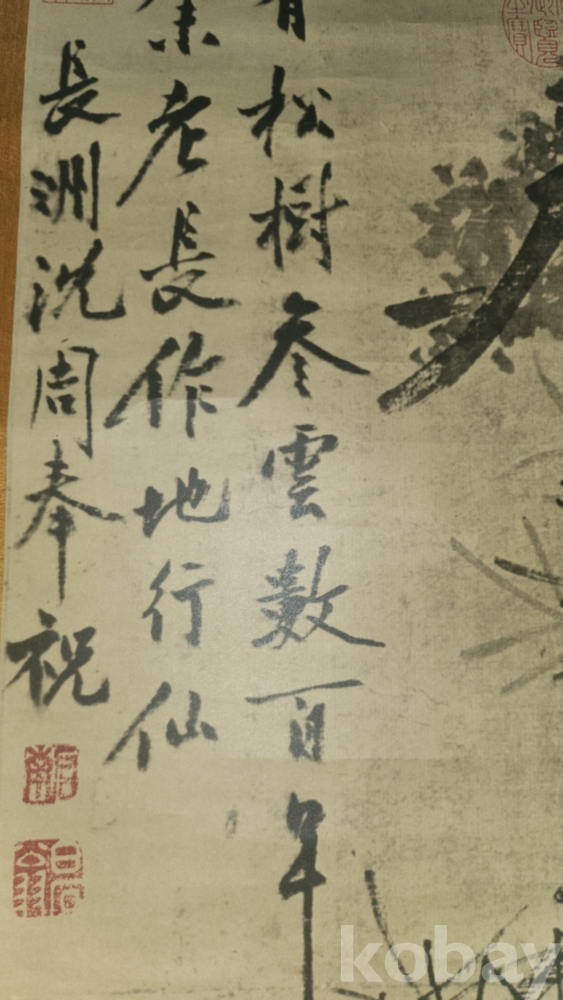 松樹参雲數百年
老長作地行仙
長洲沈周奉祝
kobay